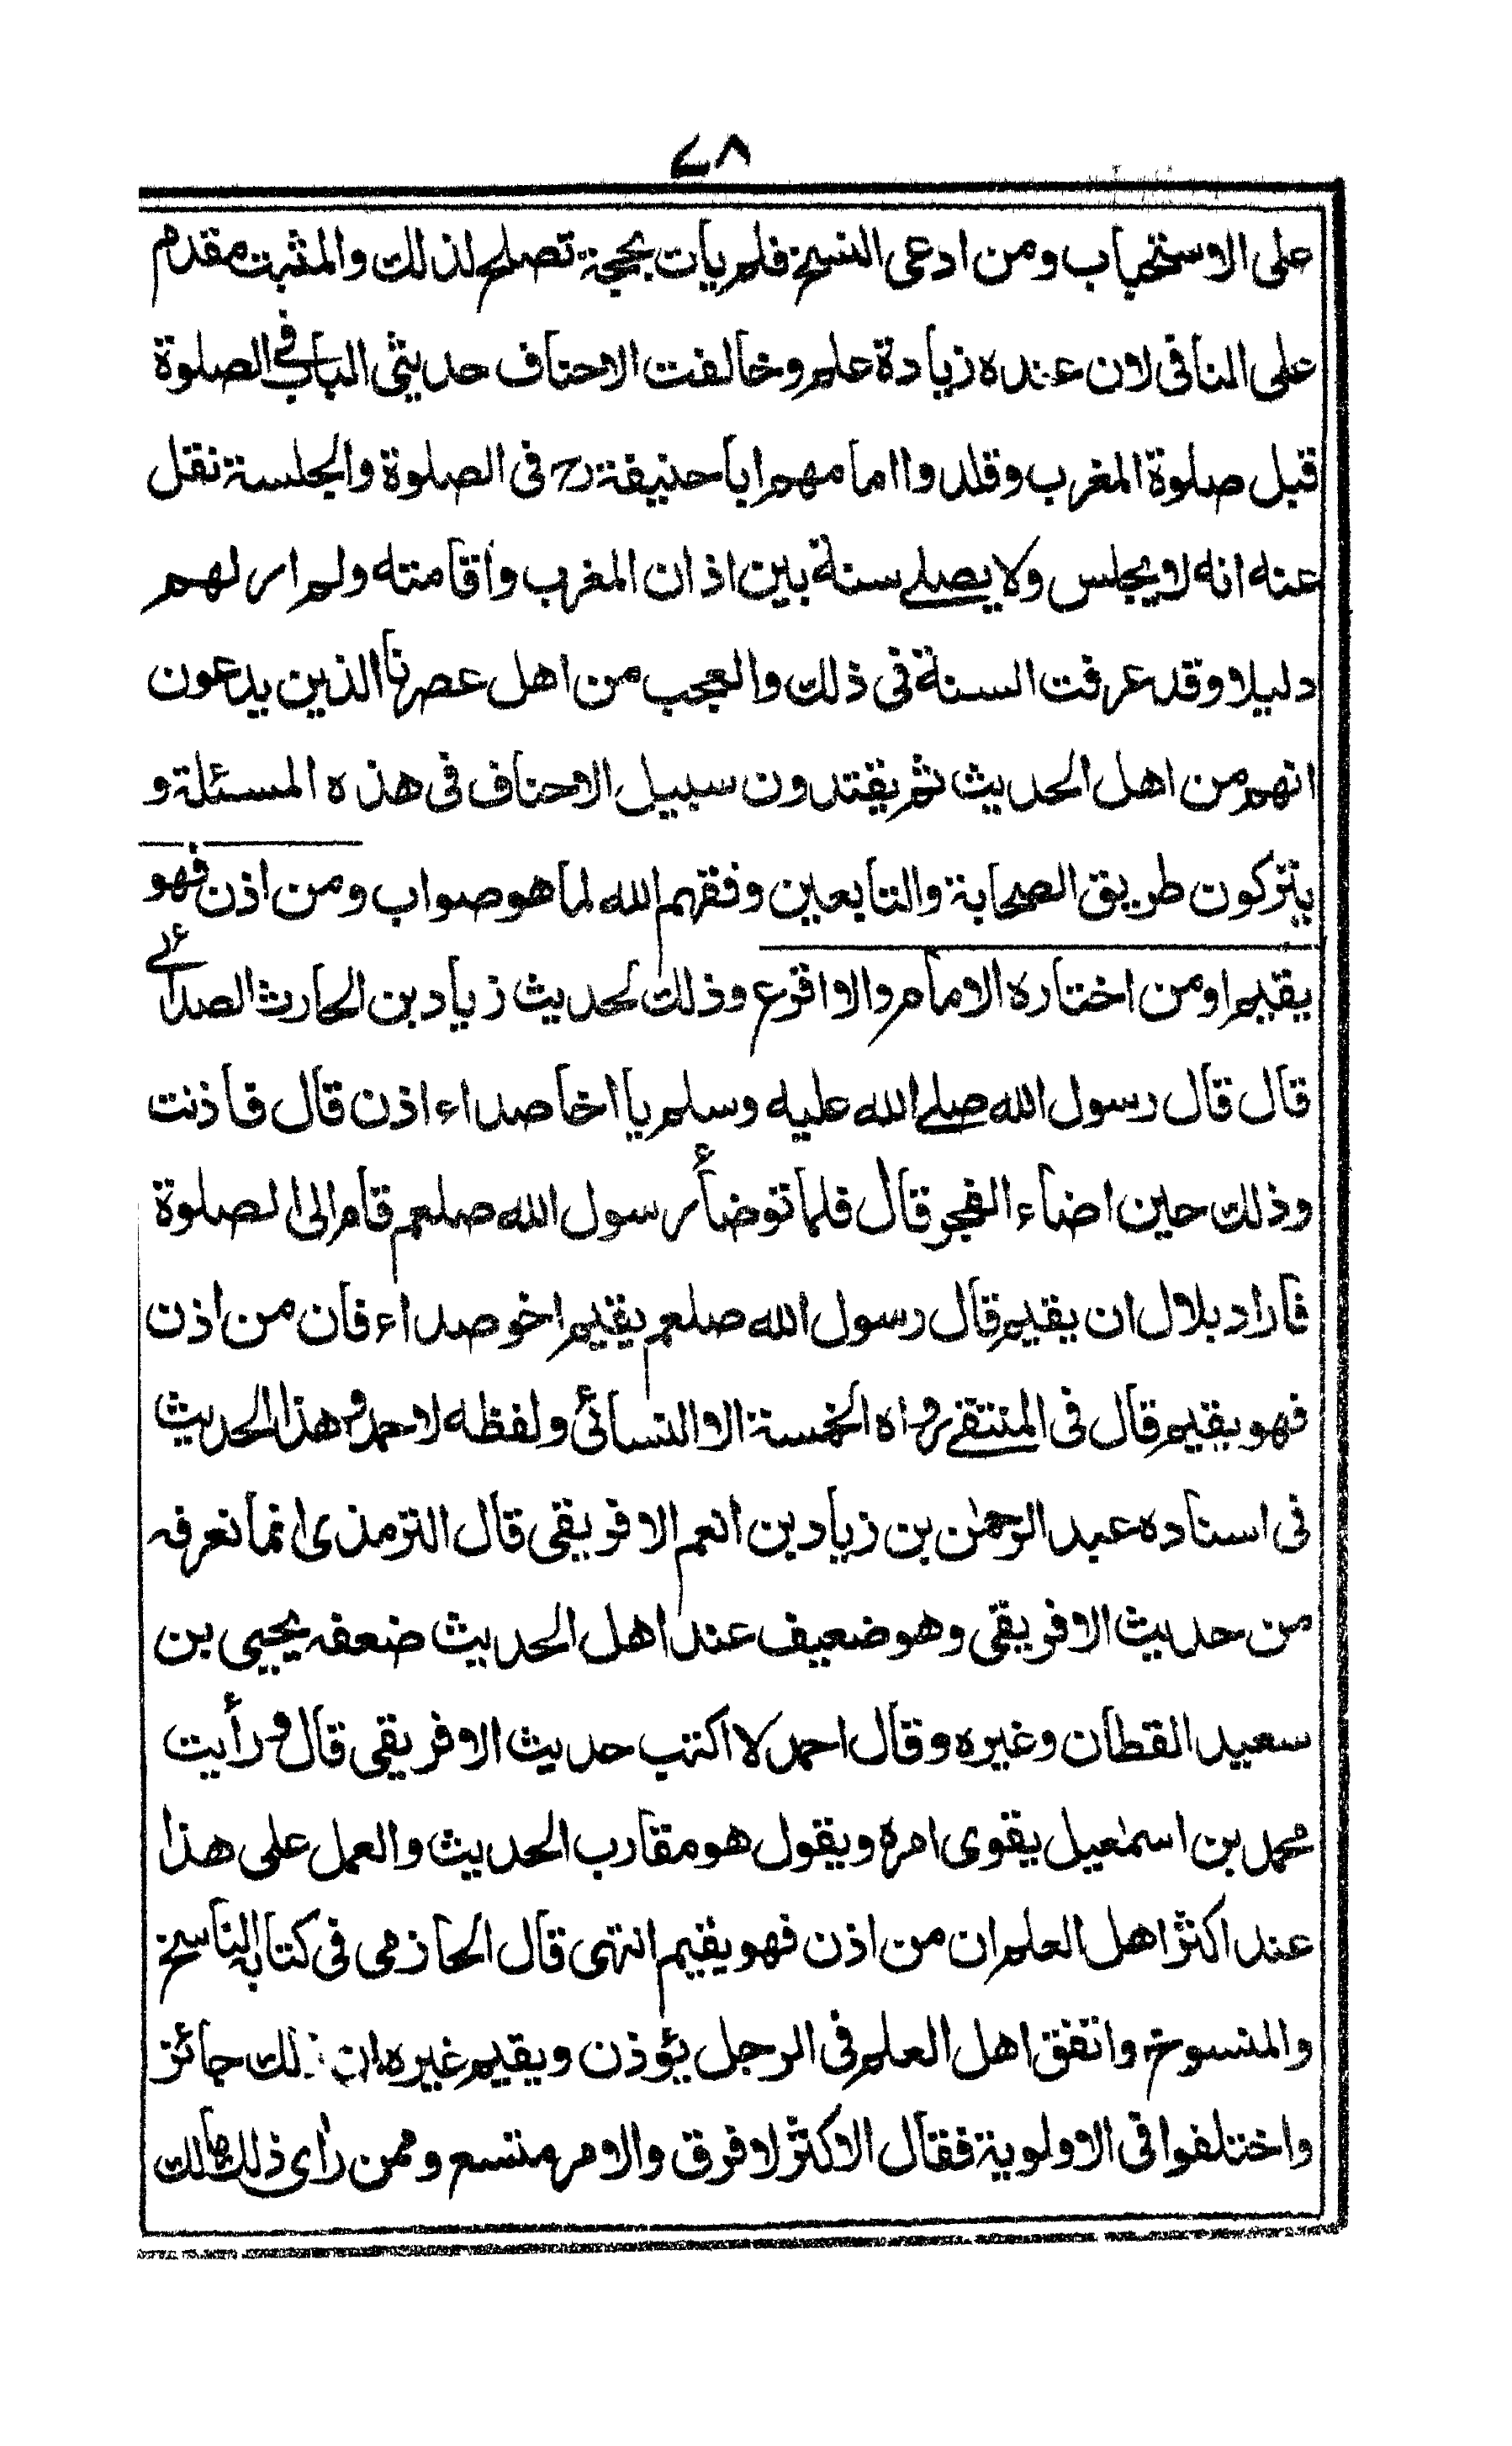 ٧٨
على الاستحباب ومن ادعى النسخ فلم يات بحجة تصلح لذلك والمثبت مقدم
على النافى لان عنده زيادة علم وخالفت الاحناف حديثى الباب فى الصلوة
قبل صلوة المغرب وقلدوا امامهم ابا حنيفة رح فى الصلوة والجلسة نقل
عنه انه لا يجلس ولا يصلے سنة بين اذان المغرب وأقامته ولم ار لهم
دليلا وقد عرفت السنة فى ذلك والعجب من اهل عصرنا الذين يدعون
انهم من اهل الحديث ثم يقتدون سبيل الاحناف فى هذه المسئلة و
يتركون طريق الصحابة والتابعين وفقهم الله لما هو صواب ومن اذن فهو
يقيم او من اختاره الامام والا اقرع وذلك لحديث زياد بن الحارث الصدائے
قال قال رسول الله صلے الله عليه وسلم يا اخا صداء اذن قال فاذنت
وذلك حين اضاء الفجر قال فلما توضأ رسول الله صلعم قام الى الصلوة
فاراد بلال ان يقيم قال رسول الله صلعم يقيم اخو صداء فان من اذن
فهو يقيم قال فى المنتقے رواه الخمسة الا النسائى ولفظه لاحمد وهذا الحديث
فى اسناده عبد الرحمٰن بن زياد بن انعم الافريقى قال الترمذى انما نعرفه
من حديث الافريقى وهو ضعيف عند اهل الحديث ضعفه يحيى بن
سعيد القطان وغيره وقال احمد لا اكتب حديث الافريقى قال ورأيت
محمد بن اسمٰعيل يقوى امره ويقول هو مقارب الحديث والعمل على هذا
عند اكثر اهل العلم ان من اذن فهو يقيم انتهى قال الحازمى فى كتابه الناسخ
والمنسوخ واتفق اهل العلم فى الرجل يؤذن ويقيم غيره ان ذلك جائز
واختلفوا فى الاولوية فقال الاكثر لا فرق والامر متسع وممن رأى ذلك مالك